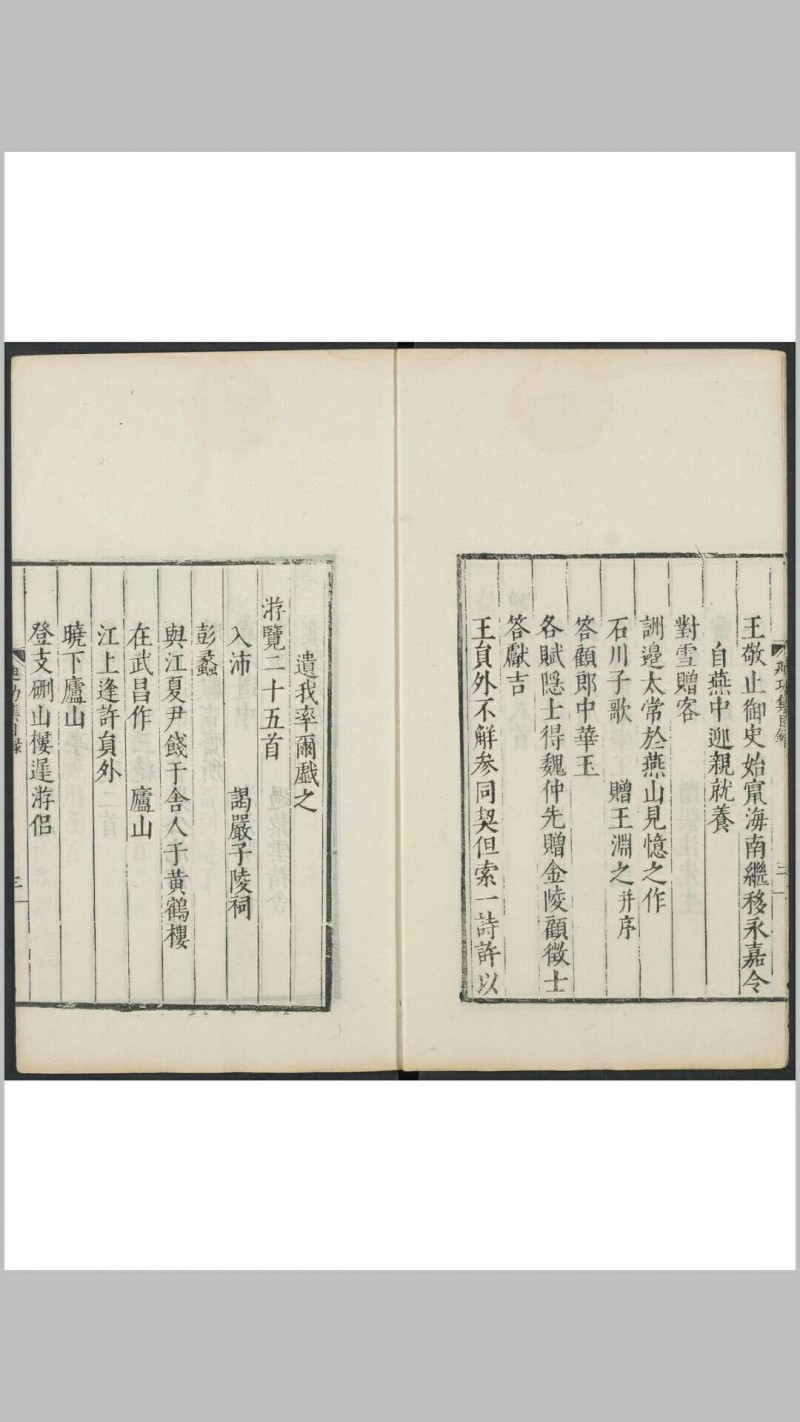 王敬止御史始竄海南繼移永嘉令
自燕中迎親就養
對雪贈客
詶邉太常於燕山見憶之作
石川子歌　贈王淵之并序
答顧郎中華玉
各賦隠士得魏仲先贈金陵顧徵士
答獻吉
王貟外不解叅同契但索一詩許以
遺我率爾戲之
游覽二十五首
入沛　謁嚴子陵祠
彭蠡
與江夏尹餞于舍人于黃鶴樓
在武昌作　廬山
江上逢許貟外
曉下廬山
登支硎山樓遲游侶